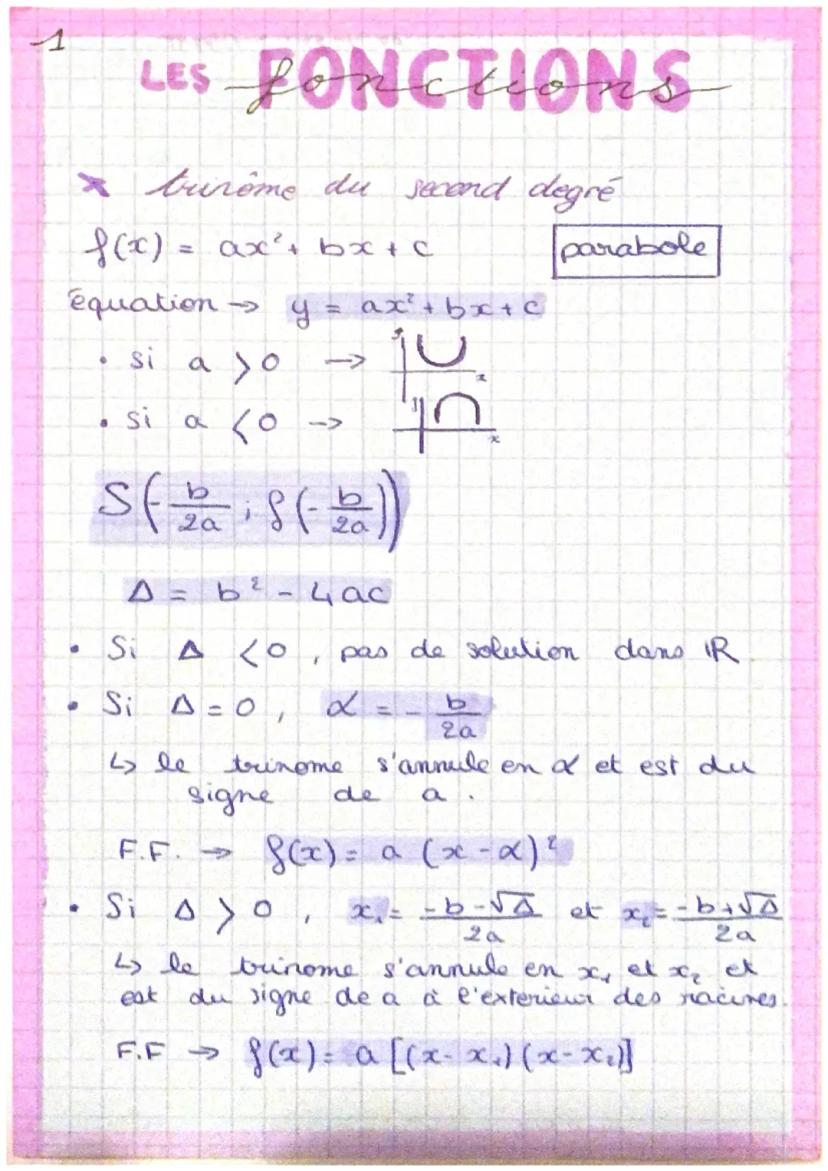 1
LES FONCTIONS
fonctions
* trinôme du second degré
f(x) = ax² + bx + c
parabole
équation → y = ax² + bx + c
• si a > 0 →
y
x
• si a < 0 →
y
x
S(-b/2a ; f(-b/2a))
Δ = b² - 4ac
• Si Δ < 0, pas de solution dans ℝ
• Si Δ = 0, α = - b/2a
↳ le trinome s'annule en α et est du
signe de a.
F.F. → f(x) = a (x - α)²
• Si Δ > 0, x₁ = -b-√Δ/2a et x₂ = -b+√Δ/2a
↳ le trinome s'annule en x₁ et x₂ et
est du signe de a à l'exterieur des racines.
F.F → f(x) = a [(x - x₁)(x - x₂)]